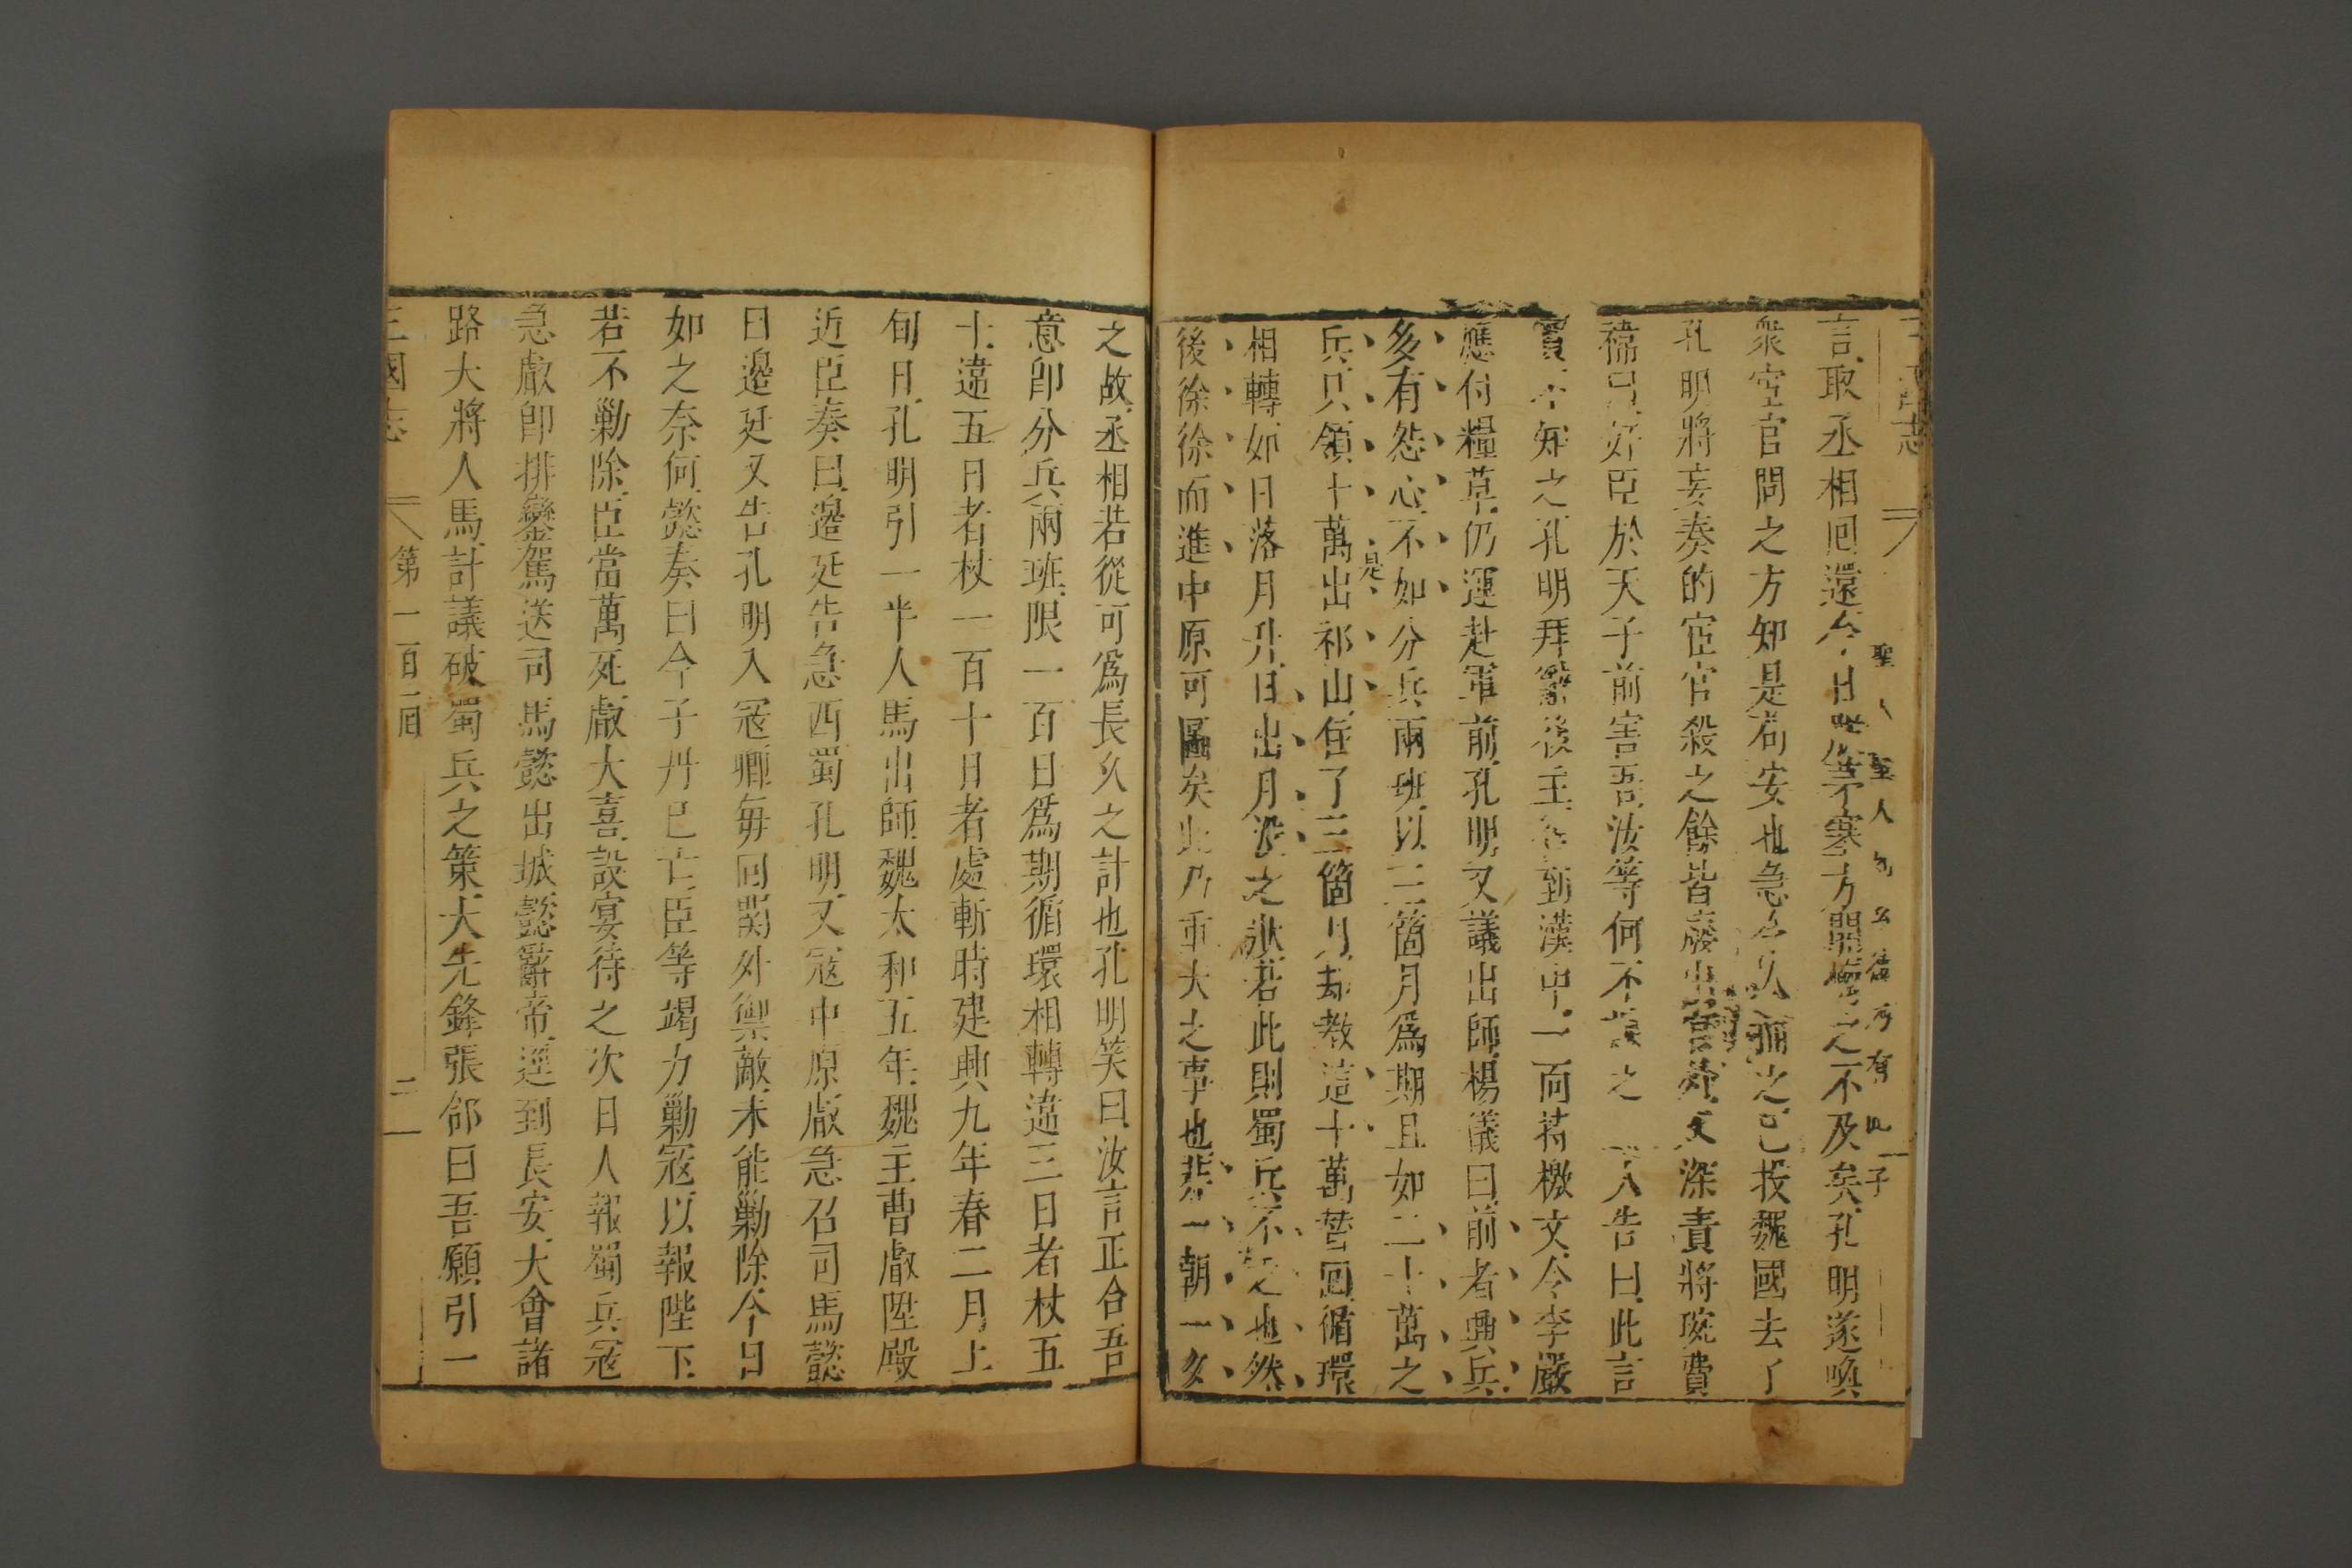 三國志
言取丞相囘還今日然等茅塞方開悔之不及矣孔明遂喚
衆宦官問之方知是苟安也急令人捕之已投魏國去了
孔明將妄奏的宦官殺之餘皆廢出宮外又深責將琬費
禕曰奸臣於天子前害吾汝等何不諫之二人告曰此言
實不知之孔明拜辭後主復到漢中一面着檄文令李嚴
應付糧草仍運赴軍前孔明又議出師楊儀曰前者興兵
多有怨心不如分兵兩班以三箇月爲期且如二十萬之
是
兵只領十萬出祁山住了三箇月却教這十萬替回循環
相轉如日落月升日出月沒之狀若此則蜀兵不乏也然
後徐徐而進中原可圖矣此乃重大之事也非一朝一夕
之故丞相若從可爲長久之計也孔明笑曰汝言正合吾
意卽分兵兩班限一百日爲期循環相轉違三日者杖五
十違五日者杖一百十日者處斬時建興九年春二月上
旬日孔明引一半人馬出師魏太和五年魏主曹叡陞殿
近臣奏曰邊廷告急西蜀孔明又寇中原叡急召司馬懿
曰邊廷又告孔明入寇卿每回閫外禦敵未能勦除今日
如之奈何懿奏曰今子丹已亡臣等竭力勦寇以報陛下
若不勦除臣當萬死叡大喜設宴待之次日人報蜀兵寇
急叡卽排鑾駕送司馬懿出城懿辭帝逕到長安大會諸
路大將人馬計議破蜀兵之策大先鋒張郃曰吾願引一
三國志 第一百一囘 二